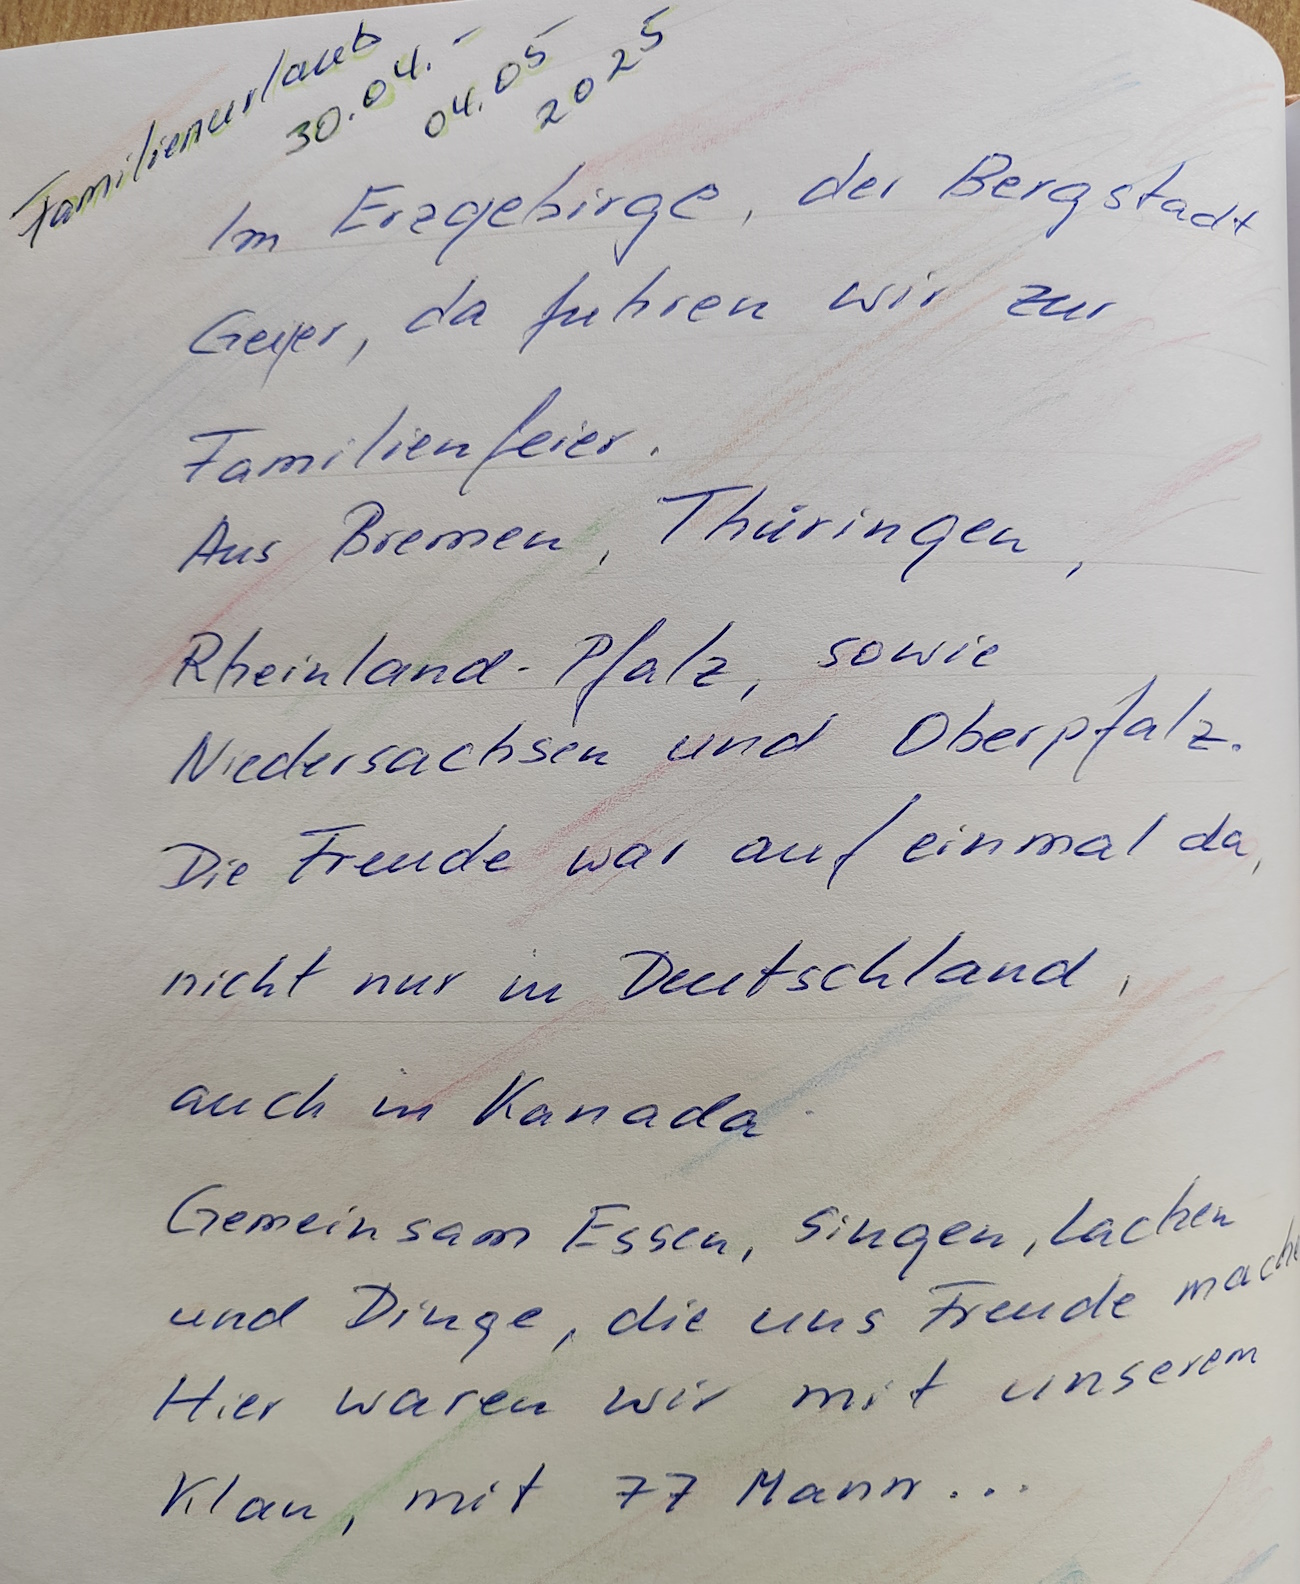 Familienurlaub
30.04. -
04.05
2025
Im Erzgebirge, der Bergstadt
Geyer, da fuhren wir zur
Familienfeier.
Aus Bremen, Thüringen,
Rheinland-Pfalz, sowie
Niedersachsen und Oberpfalz.
Die Freude war auf einmal da,
nicht nur in Deutschland,
auch in Kanada.
Gemeinsam Essen, singen, Lachen
und Dinge, die uns Freude mache
Hier waren wir mit unserem
Klan, mit 77 Mann...